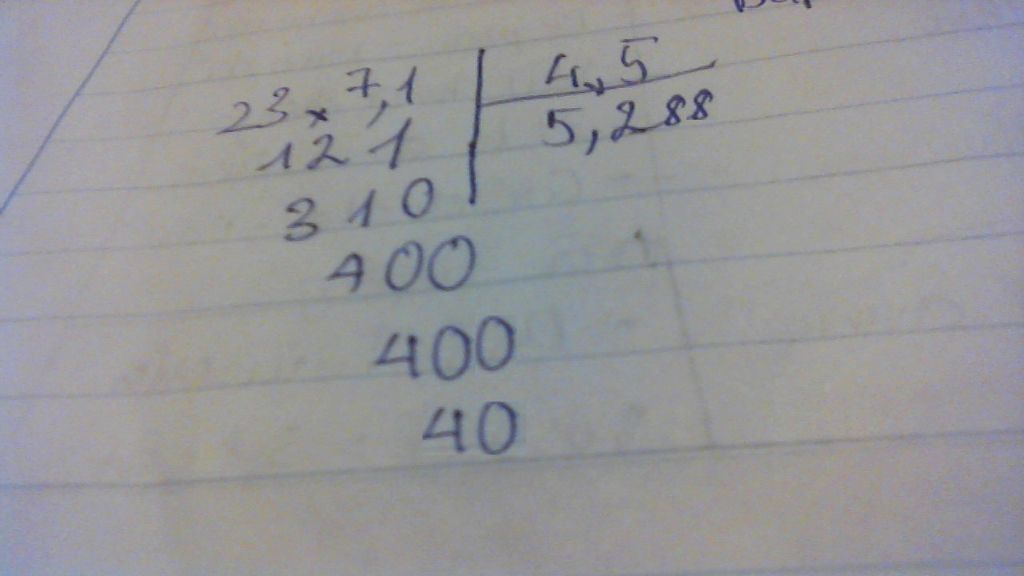 23,7,1 | 4,5
121 | 5,288
310
400
400
40